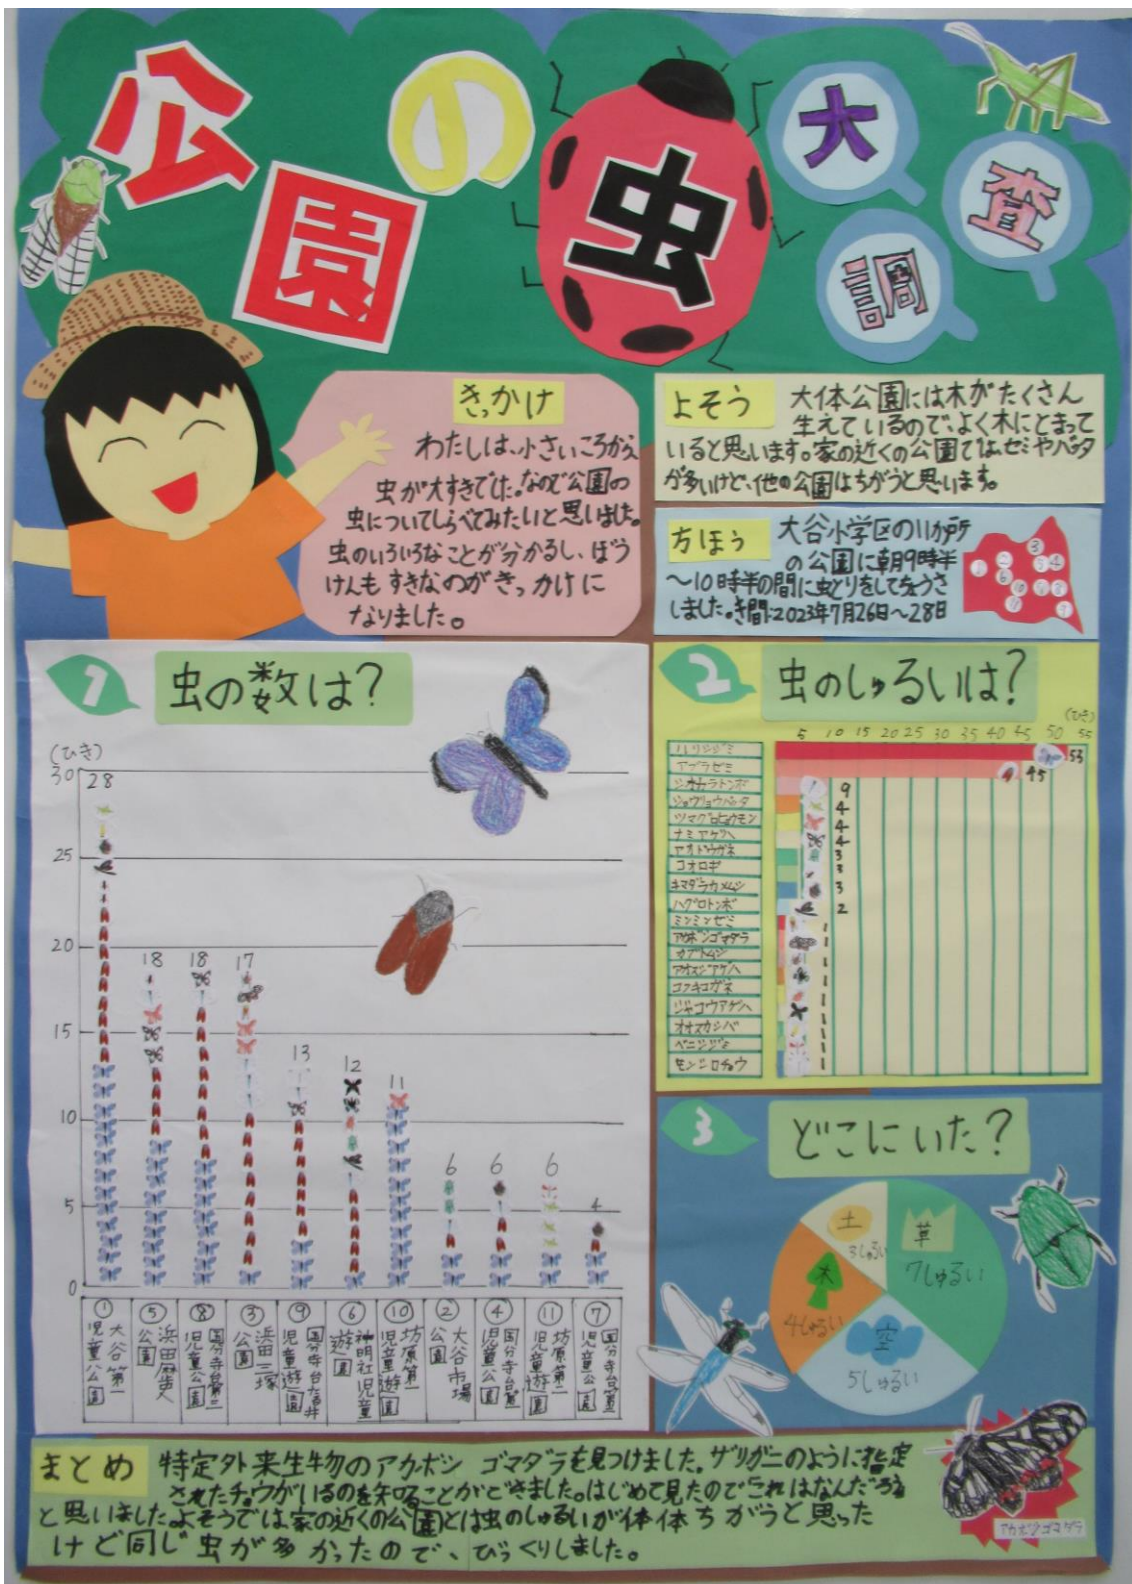 公園の虫大調査
きっかけ
わたしは、小さいころから
虫が大すきでした。なので公園の
虫についてしらべてみたいと思いました。
虫のいろいろなことが分かるし、ぼう
けんもすきなのがきっかけに
なりました。
よそう
大体公園には木がたくさん
生えているので、よく木にとまって
いると思います。家の近くの公園では、セミやバッタ
が多いけど、他の公園はちがうと思います。
方ほう
大谷小学区の11か所
の公園に朝9時半
～10時半の間に虫とりをしてちょうさ
しました。き間:2023年7月26日～28日
1 虫の数は?
(ひき)
30
25
20
15
10
5
0
28
18
18
17
13
12
11
6
6
6
4
① 大谷第一児童公園
⑤ 浜田歴史公園
⑧ 国分寺台第二児童公園
③ 浜田三塚公園
⑨ 国分寺台石井児童遊園
⑥ 神明社児童遊園
⑩ 坊原第一児童遊園
② 大谷市場公園
④ 国分寺台第
児童公園
⑪ 坊原第二児童遊園
⑦ 国分寺台第
児童公園
2 虫のしゅるいは?
(ひき)
5 10 15 20 25 30 35 40 45 50 55
シジミ 53
アブラゼミ 45
シオカラトンボ 9
ショウリョウバッタ 4
ツマグロヒョウモン 4
ナミアゲハ 4
アオドウガネ 3
コオロギ 3
キマダラカメムシ 3
ハグロトンボ 2
ミンミンゼミ 1
アカボシゴマダラ 1
カブトムシ 1
アオスジアゲハ 1
コフキコガネ 1
ジャコウアゲハ 1
オオスカシバ 1
ベニシジミ 1
モンシロチョウ 1
3 どこにいた?
草
7しゅるい
空
5しゅるい
木
4しゅるい
土
3しゅるい
まとめ
特定外来生物のアカボシ ゴマダラを見つけました。ザリガニのように指定
されたチョウがいるのを知ることができました。はじめて見たので「これはなんだろう
と思いました。よそうでは家の近くの公園とは虫のしゅるいが体体ちがうと思った
けど同じ虫が多かったので、びっくりしました。
アカボシゴマダラ